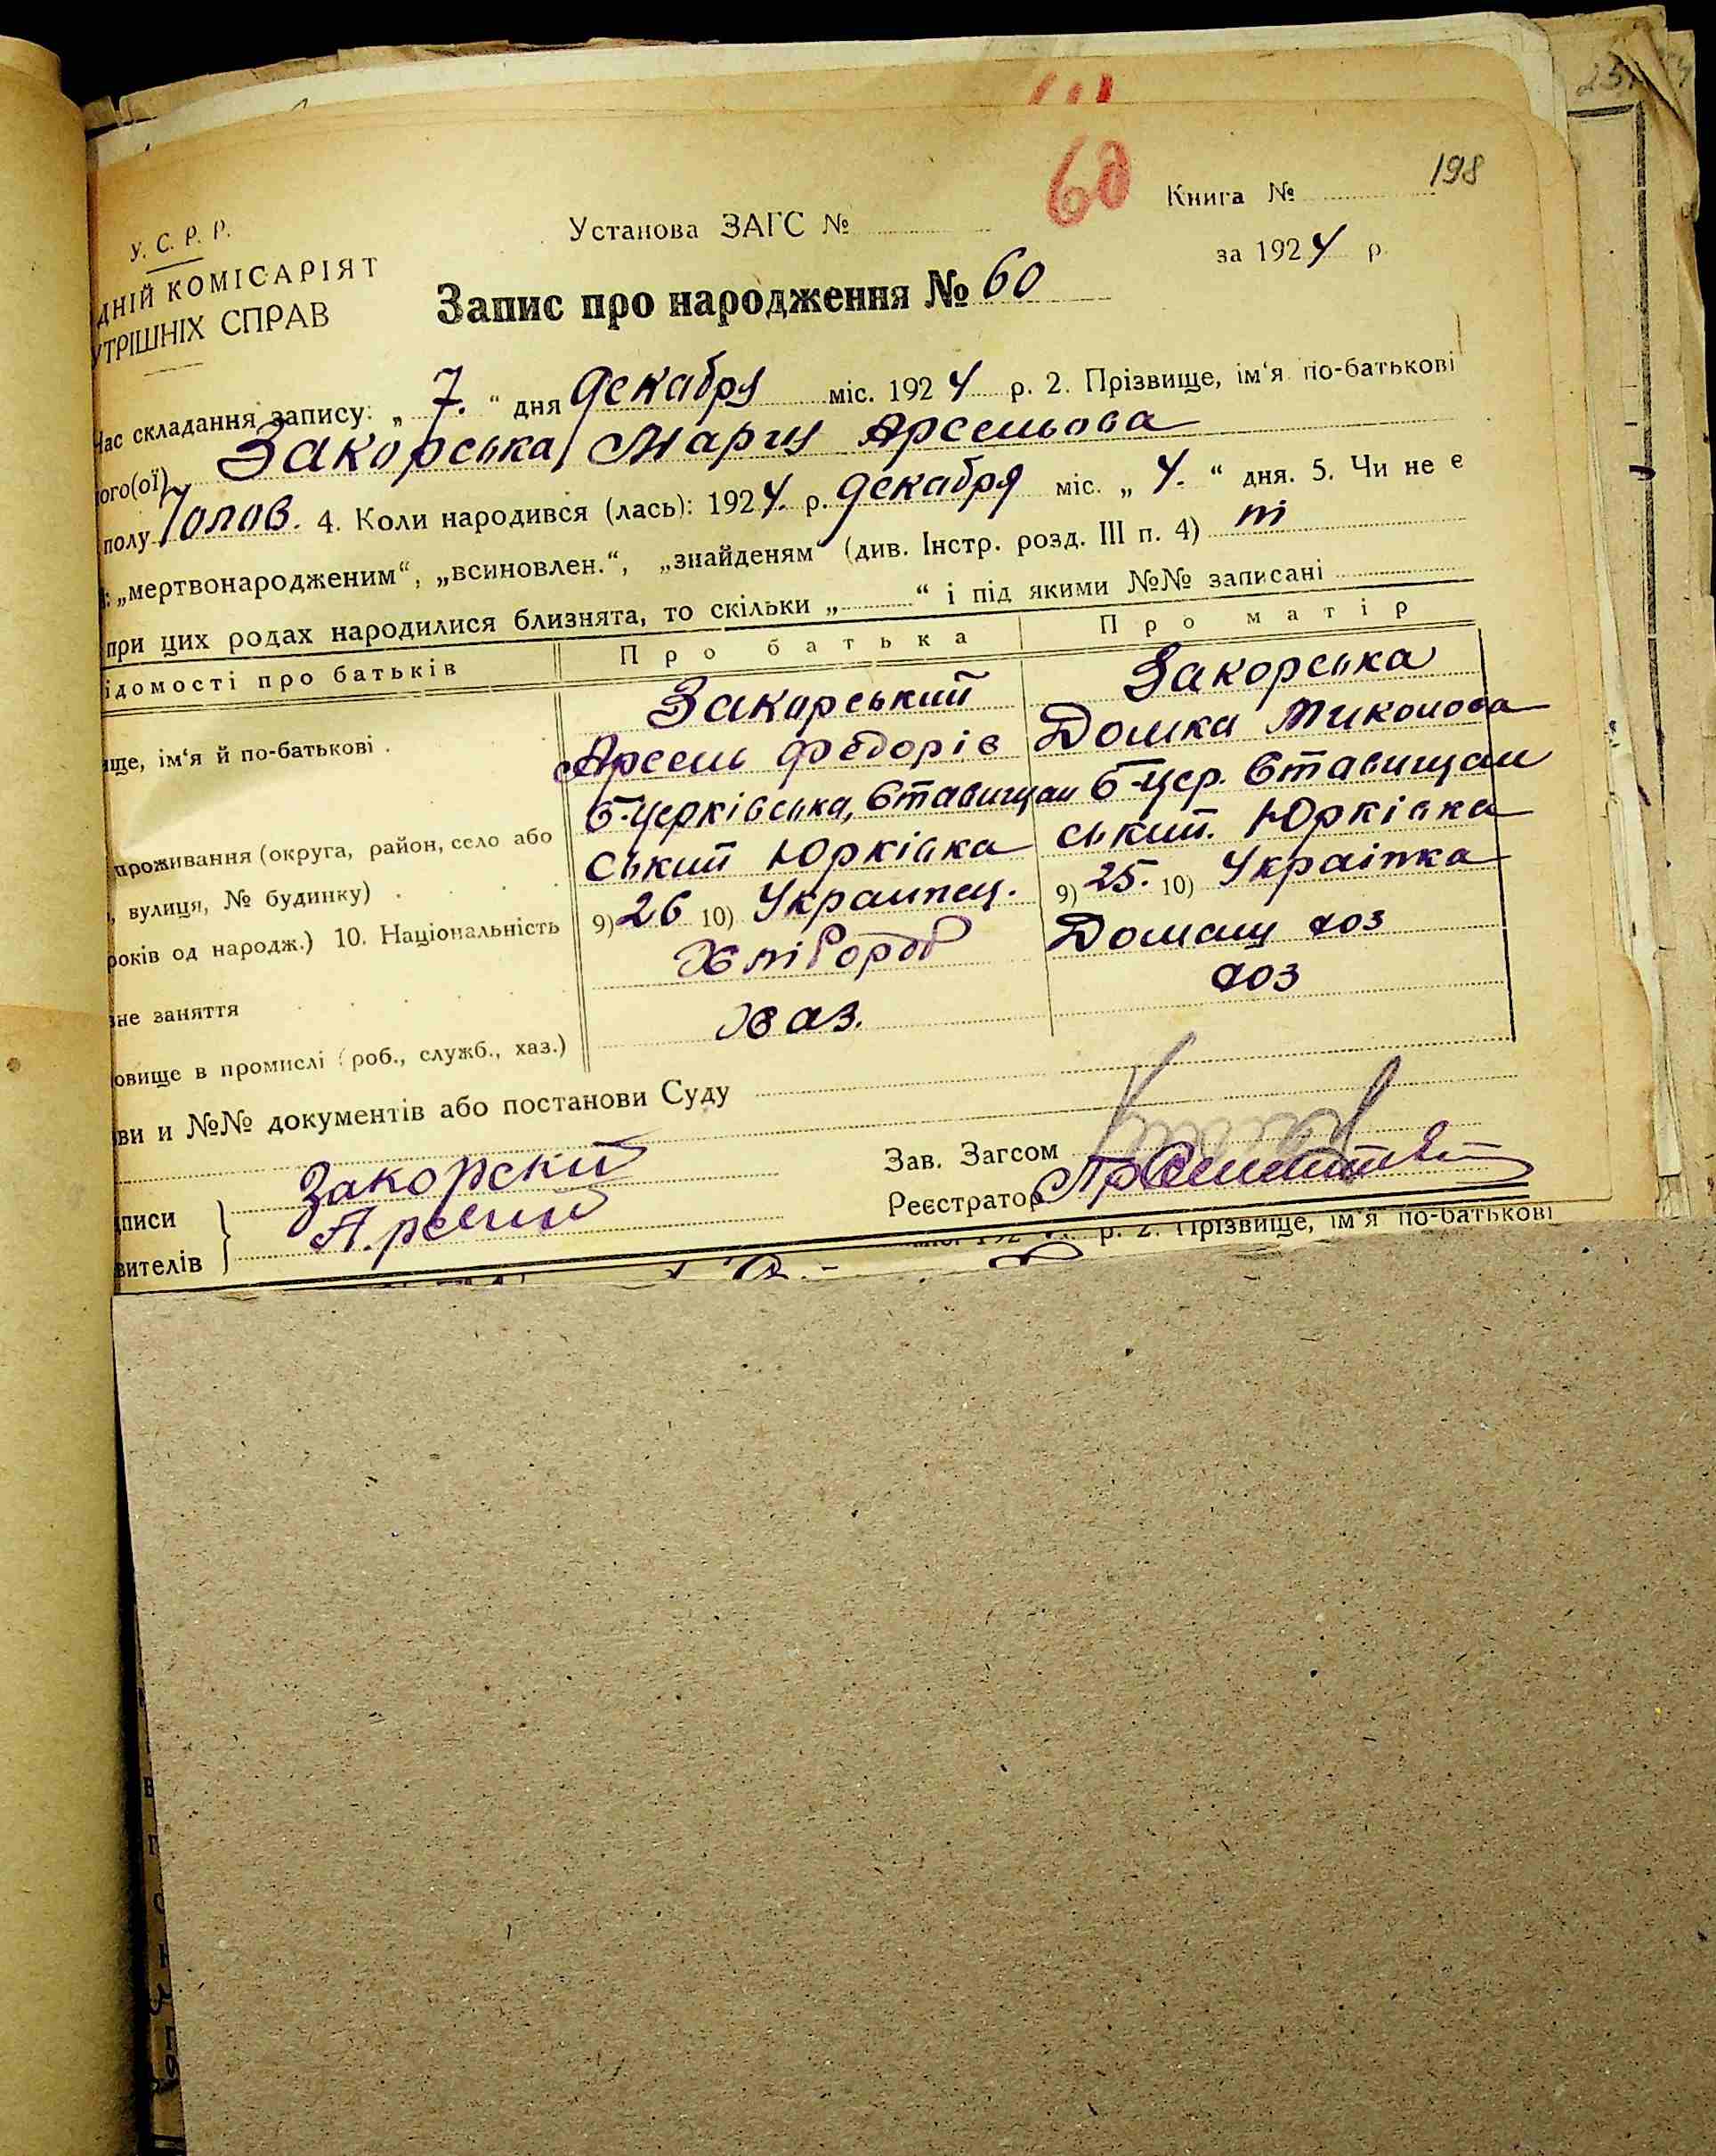 198
60
У. С. Р. Р.
Установа ЗАГС №
Книга №
ДНІЙ КОМІСАРІЯТ
УТРІШНІХ СПРАВ
за 1924 р.
Запис про народження № 60
Час складання запису: „ 7. “ дня декабря міс. 1924 р. 2. Прізвище, ім‘я по-батькові
ого(ої) Закорська Марія Арсеньова
полу 4. Коли народився (лась): 1924. р. декабря міс. „ 4. “ дня. 5. Чи не є
: „мертвонародженим“, „всиновлен.“, „знайденям“ (див. Інстр. розд. III п. 4) ні
при цих родах народилися близнята, то скільки „ “ і під якими №№ записані
ідомості про батьків Про батька Про матір
Закорський Закорська
ище, ім‘я й по-батькові . Арсень Федорів Домка Миконова
Б-Церківська, Ставищан Б-Цер. Ставищан
проживання (округа, район, село або ський Юрківка ський. Юрківка
, вулиця, № будинку) .
років од народж.) 10. Національність 9) 26 10) Украинец. 9) 25. 10) Українка
Хлібороб Домащ хоз
вне заняття
Хаз. хоз
овище в промислі (роб., служб., хаз.)
ви и №№ документів або постанови Суду
Закорский
Арсений
Зав. Загсом
Реєстратор
писи
вителів
міс. 192 р. 2. Прізвище, ім‘я по-батькові